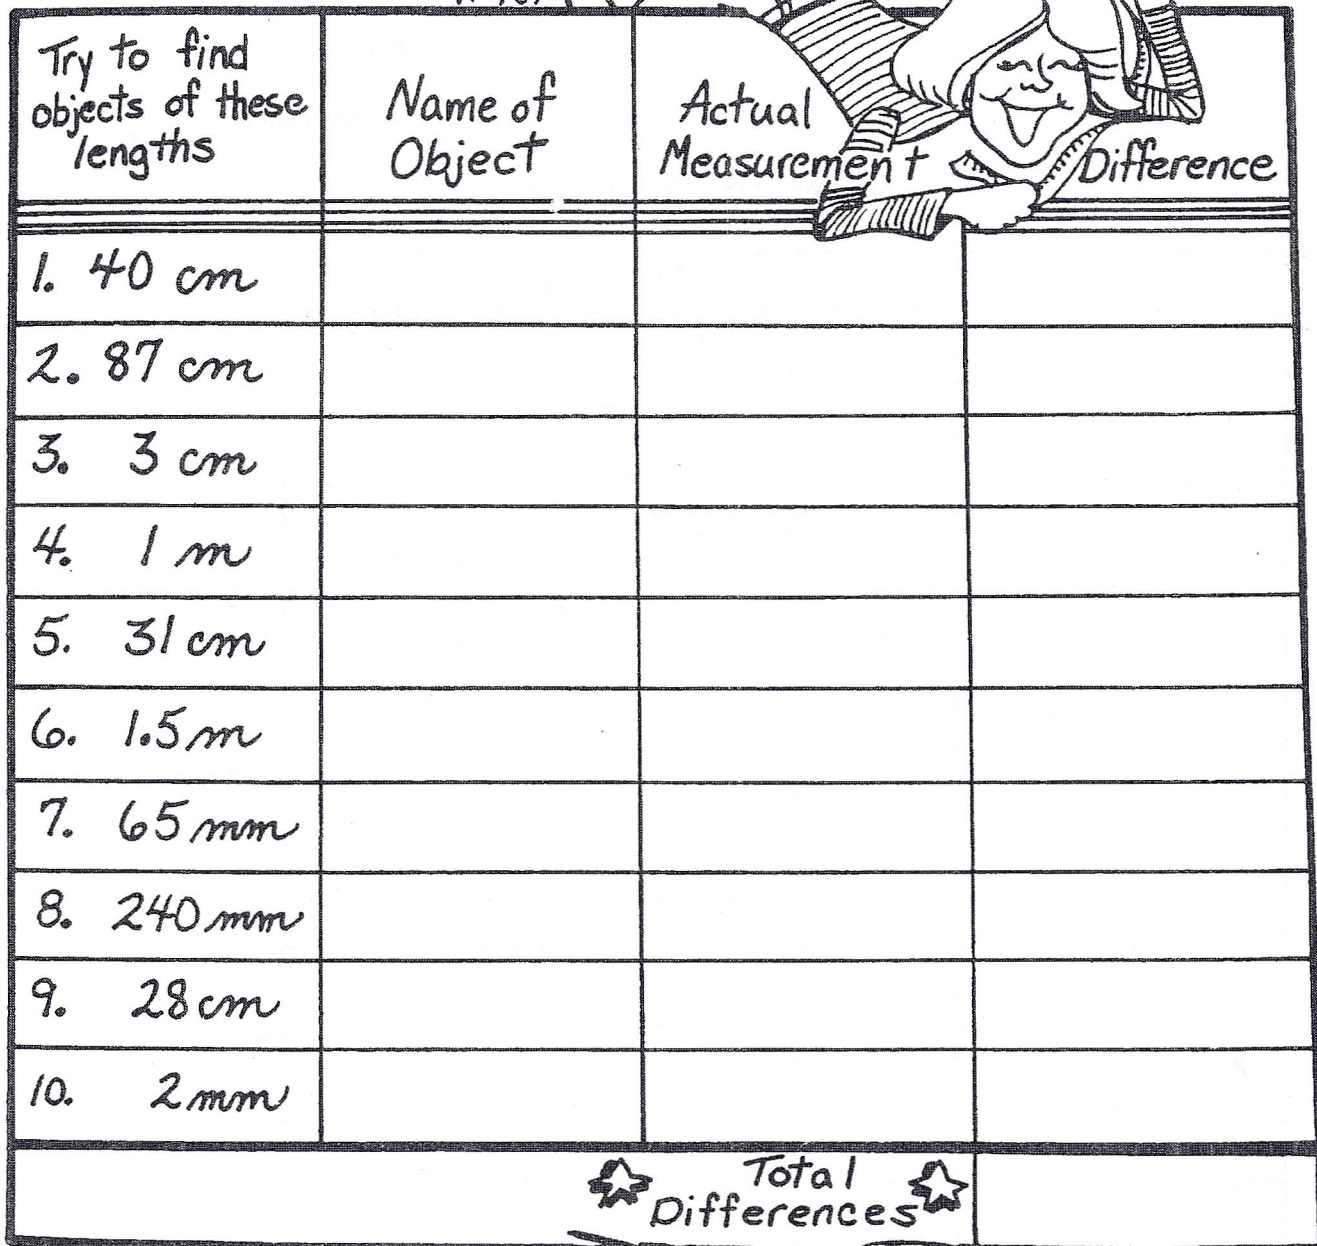 Try to find
objects of these
lengths
Name of
Object
Actual
Measurement
Difference
1. 40 cm
2. 87 cm
3. 3 cm
4. 1 m
5. 31 cm
6. 1.5 m
7. 65 mm
8. 240 mm
9. 28 cm
10. 2 mm
Total
Differences